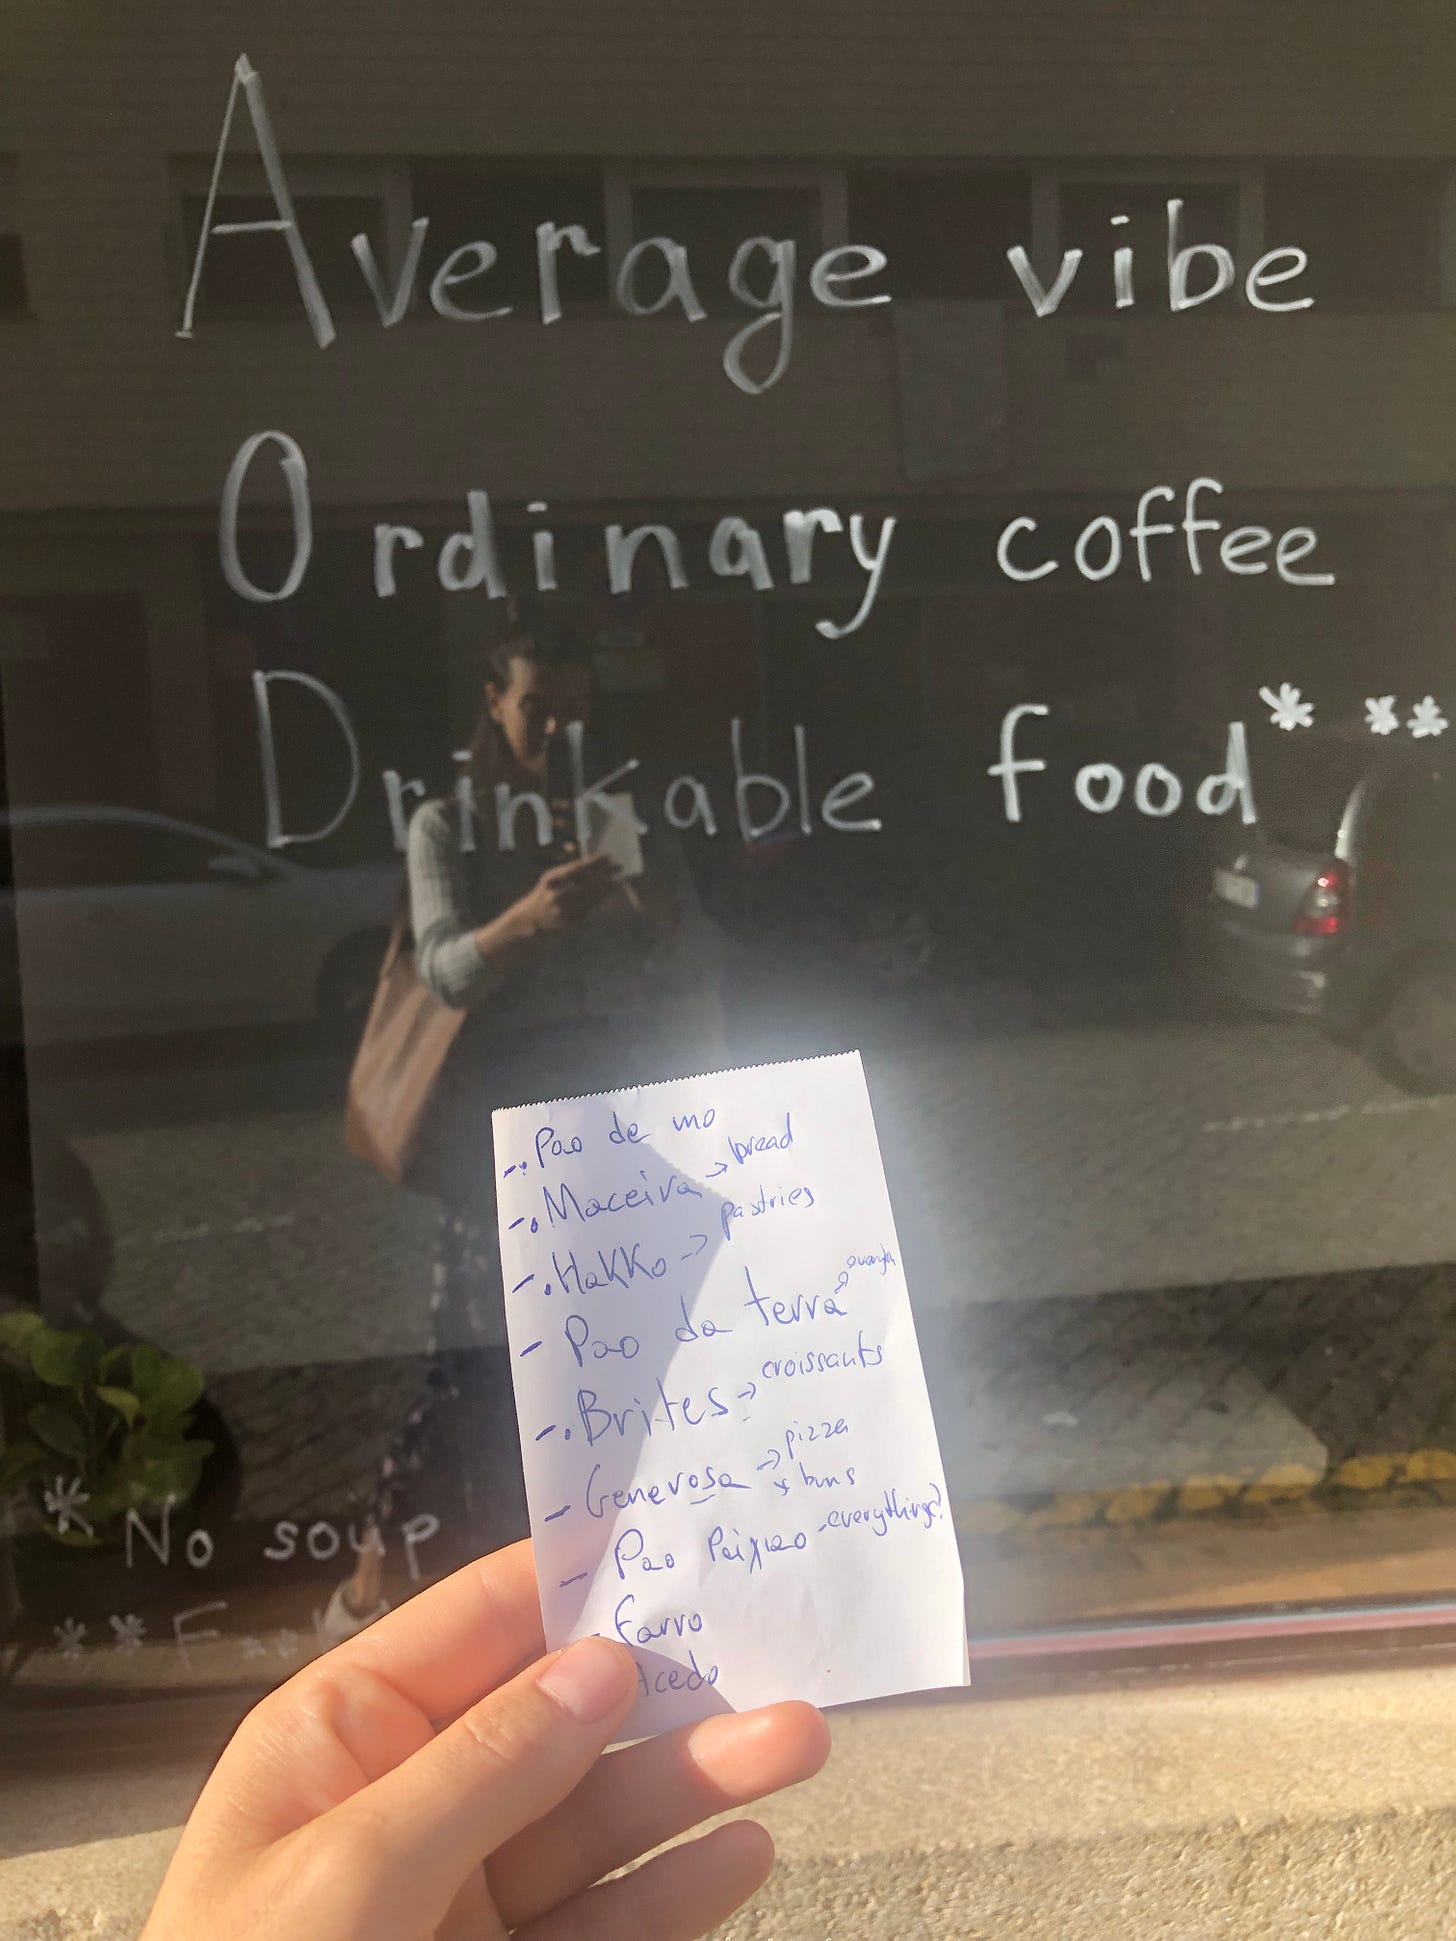 Average vibe
Ordinary coffee
Drinkable food* **
* No soup
**
- Pao de mo
- Maceira → bread
- Hakko → pastries
- Pao da terra →
- Brites → croissants
- Generosa → pizza
+ buns
- Pao Paixao - everything?
- Farro
Acedo